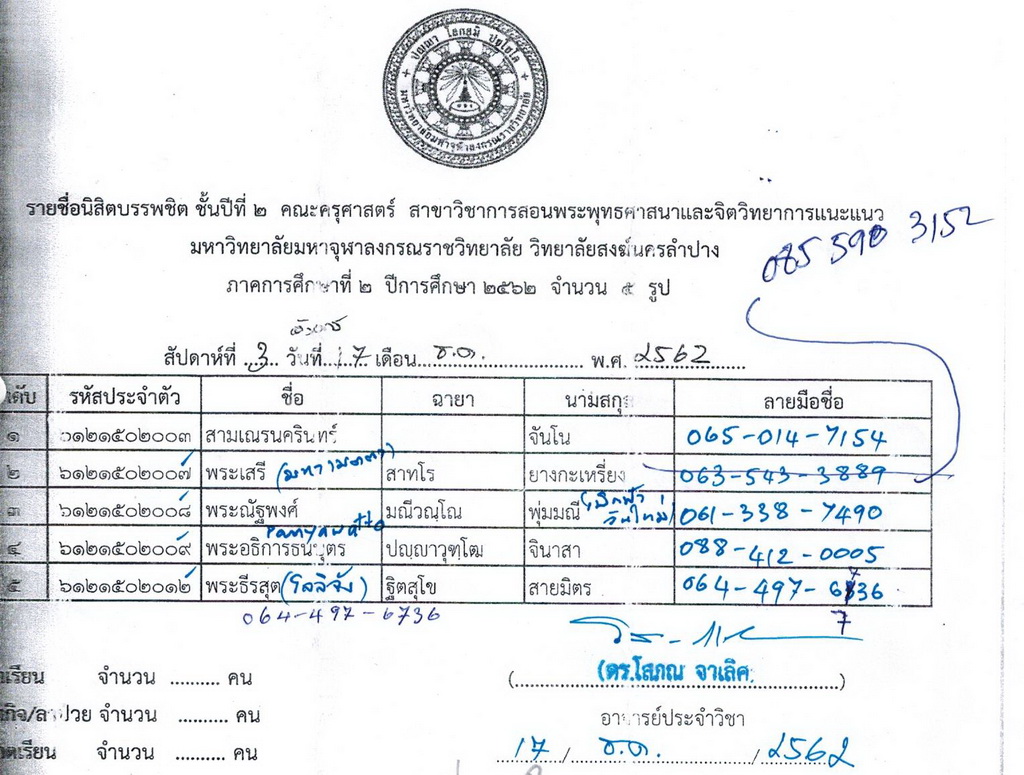 ปญฺญา โลกสฺมิ ปชฺโชโต
มหาวิทยาลัยมหาจุฬาลงกรณราชวิทยาลัย
รายชื่อนิสิตบรรพชิต ชั้นปีที่ ๒ คณะครุศาสตร์ สาขาวิชาการสอนพระพุทธศาสนาและจิตวิทยาการแนะแนว
มหาวิทยาลัยมหาจุฬาลงกรณราชวิทยาลัย วิทยาลัยสงฆ์นครลำปาง
085 590 3152
ภาคการศึกษาที่ ๒ ปีการศึกษา ๒๕๖๒ จำนวน ๕ รูป
อังคาร
สัปดาห์ที่ ...3... วันที่...17...เดือน...ธ.ค............ พ.ศ. ..2562......
รหัสประจำตัว ชื่อ ฉายา นามสกุล ลายมือชื่อ
๑ ๖๑๒๑๕๐๒๐๐๓ สามเณรนครินทร์ จันโน 065-014-7154
๒ ๖๑๒๑๕๐๒๐๐๗ พระเสรี สาทโร ยางกะเหรี่ยง 063-543-3889
๓ ๖๑๒๑๕๐๒๐๐๘ พระณัฐพงศ์ มณีวณฺโณ พุ่มมณี 061-338-7490
๔ ๖๑๒๑๕๐๒๐๐๙ พระอธิการธนบุตร ปญฺญาวุฑฺโฒ จินาสา 088-412-0005
๕ ๖๑๒๑๕๐๒๐๑๒ พระธีรสุต (โลลิจัง) ฐิตสุโข สายมิตร 064-497-6736
064-497-6736
7
(ดร.โสภณ จาเลิศ)
เรียน จำนวน .......... คน
กิจ/ลาป่วย จำนวน .......... คน อาจารย์ประจำวิชา
เรียน จำนวน .......... คน 17 / ธ.ค. / 2562